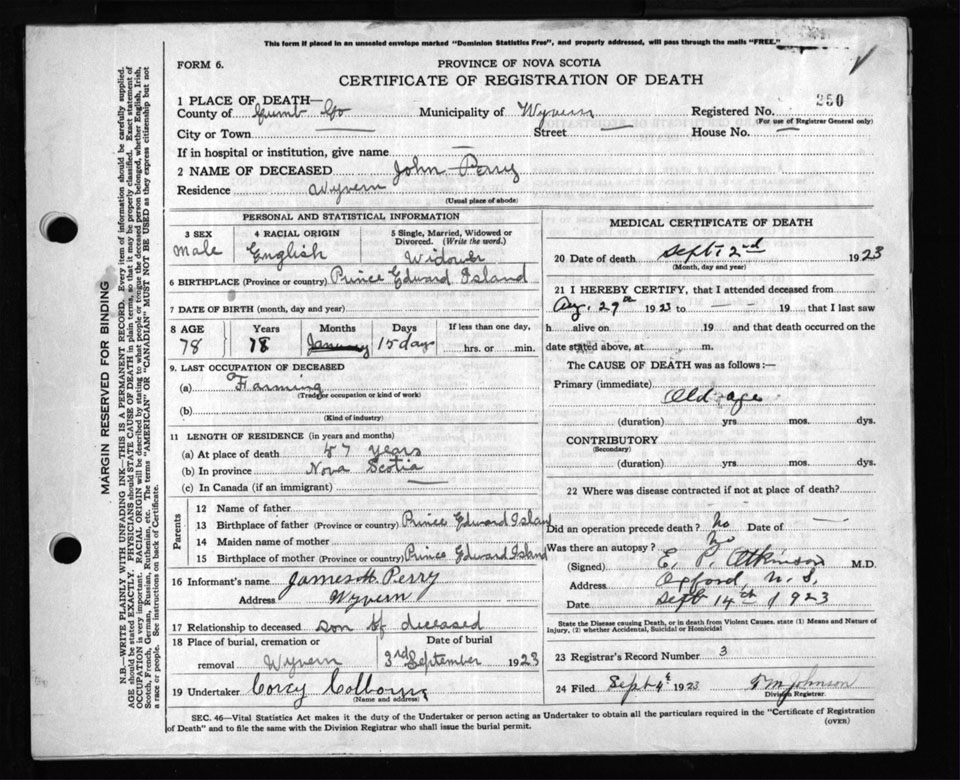 This form if placed in an unsealed envelope marked "Dominion Statistics Free", and properly addressed, will pass through the mails "FREE."
FORM 6.
PROVINCE OF NOVA SCOTIA
CERTIFICATE OF REGISTRATION OF DEATH
1 PLACE OF DEATH—
County of Cumb Co Municipality of Wyvern Registered No. 250
(For use of Registrar General only)
City or Town — Street — House No. —
If in hospital or institution, give name —
2 NAME OF DECEASED John Perry
Residence Wyvern
(Usual place of abode)
PERSONAL AND STATISTICAL INFORMATION
3 SEX 4 RACIAL ORIGIN 5 Single, Married, Widowed or Divorced. (Write the word.)
Male English Widower
6 BIRTHPLACE (Province or country) Prince Edward Island
7 DATE OF BIRTH (month, day and year)
8 AGE Years Months Days If less than one day,
78 78 January 15 days hrs. or min.
9. LAST OCCUPATION OF DECEASED
(a) Farming
(Trade or occupation or kind of work)
(b)
(Kind of industry)
11 LENGTH OF RESIDENCE (in years and months)
(a) At place of death 57 years
(b) In province Nova Scotia
(c) In Canada (if an immigrant) —
Parents
12 Name of father
13 Birthplace of father (Province or country) Prince Edward Island
14 Maiden name of mother
15 Birthplace of mother (Province or country) Prince Edward Island
16 Informant's name James H. Perry
Address Wyvern
17 Relationship to deceased son of deceased
18 Place of burial, cremation or Date of burial
removal Wyvern 3rd September 1923
19 Undertaker Corey
(Name and address)
MEDICAL CERTIFICATE OF DEATH
20 Date of death Sept. 2nd 1923
(Month, day and year)
21 I HEREBY CERTIFY, that I attended deceased from
Aug. 29th 1923 to — 19 that I last saw
h alive on 19 and that death occurred on the
date stated above, at m.
The CAUSE OF DEATH was as follows:—
Primary (immediate)
Old age
(duration) yrs. mos. dys.
CONTRIBUTORY
(Secondary)
(duration) yrs. mos. dys.
22 Where was disease contracted if not at place of death?
Did an operation precede death? No Date of —
Was there an autopsy? No
(Signed) E. P. Atkinson M.D.
Address Oxford, N. S.
Date Sept 14th 1923
State the Disease causing Death, or in death from Violent Causes, state (1) Means and Nature of
Injury, (2) whether Accidental, Suicidal or Homicidal
23 Registrar's Record Number 3
24 Filed Sept 1923 Johnson
Division Registrar.
SEC. 46—Vital Statistics Act makes it the duty of the Undertaker or person acting as Undertaker to obtain all the particulars required in the "Certificate of Registration
of Death" and to file the same with the Division Registrar who shall issue the burial permit.
(OVER)
MARGIN RESERVED FOR BINDING
N.B.—WRITE PLAINLY WITH UNFADING INK—THIS IS A PERMANENT RECORD. Every item of information should be carefully supplied.
AGE should be stated EXACTLY. PHYSICIANS should STATE CAUSE OF DEATH in plain terms, so that it may be properly classified. Exact statement of
OCCUPATION is very important. RACIAL ORIGIN will be described by stating to what people or tongue the deceased person belonged, whether English, Irish,
Scotch, French, German, Russian, Ruthenian, etc. The terms "AMERICAN" OR "CANADIAN" MUST NOT BE USED as they express citizenship but not
a race or people. See instructions on back of Certificate.